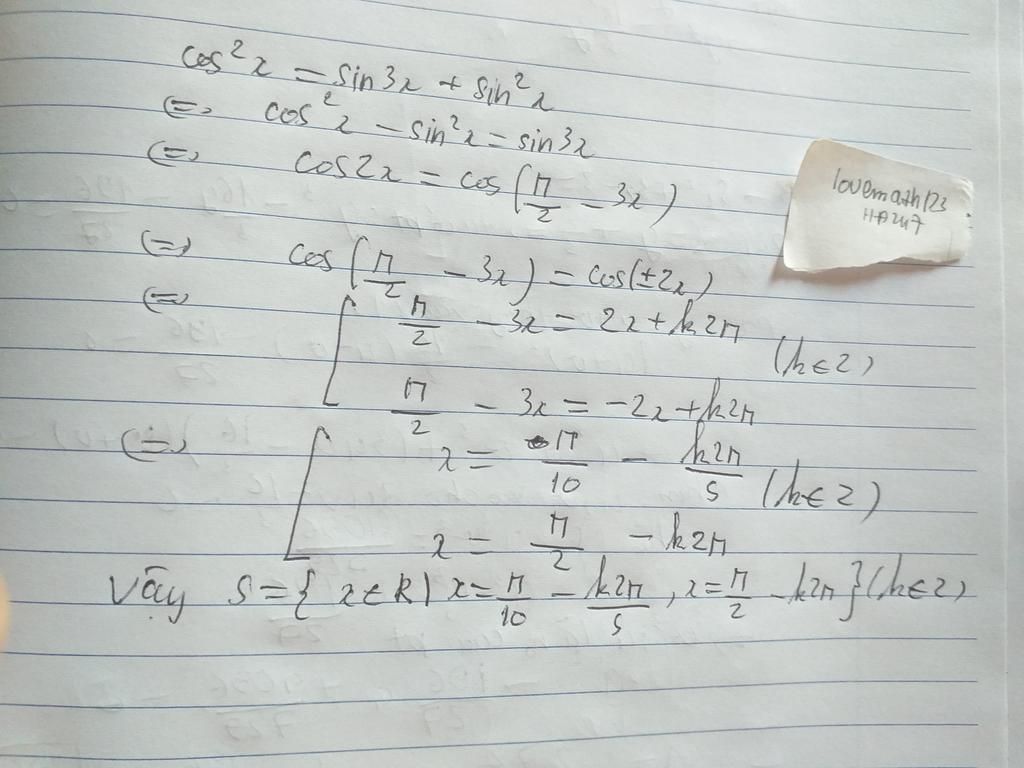 cos²x = sin3x + sin²x
(=) cos²x - sin²x = sin3x
(=) cos2x = cos(π/2 - 3x)
(=) cos(π/2 - 3x) = cos(±2x)
(=) [ π/2 - 3x = 2x + k2π
(k∈Z)
π/2 - 3x = -2x + k2π
(=) [ x = π/10 - k2π/5 (k∈Z)
x = π/2 - k2π
Vậy S = { x∈R | x = π/10 - k2π/5, x = π/2 - k2π } (k∈Z)
lovemath123
HA247